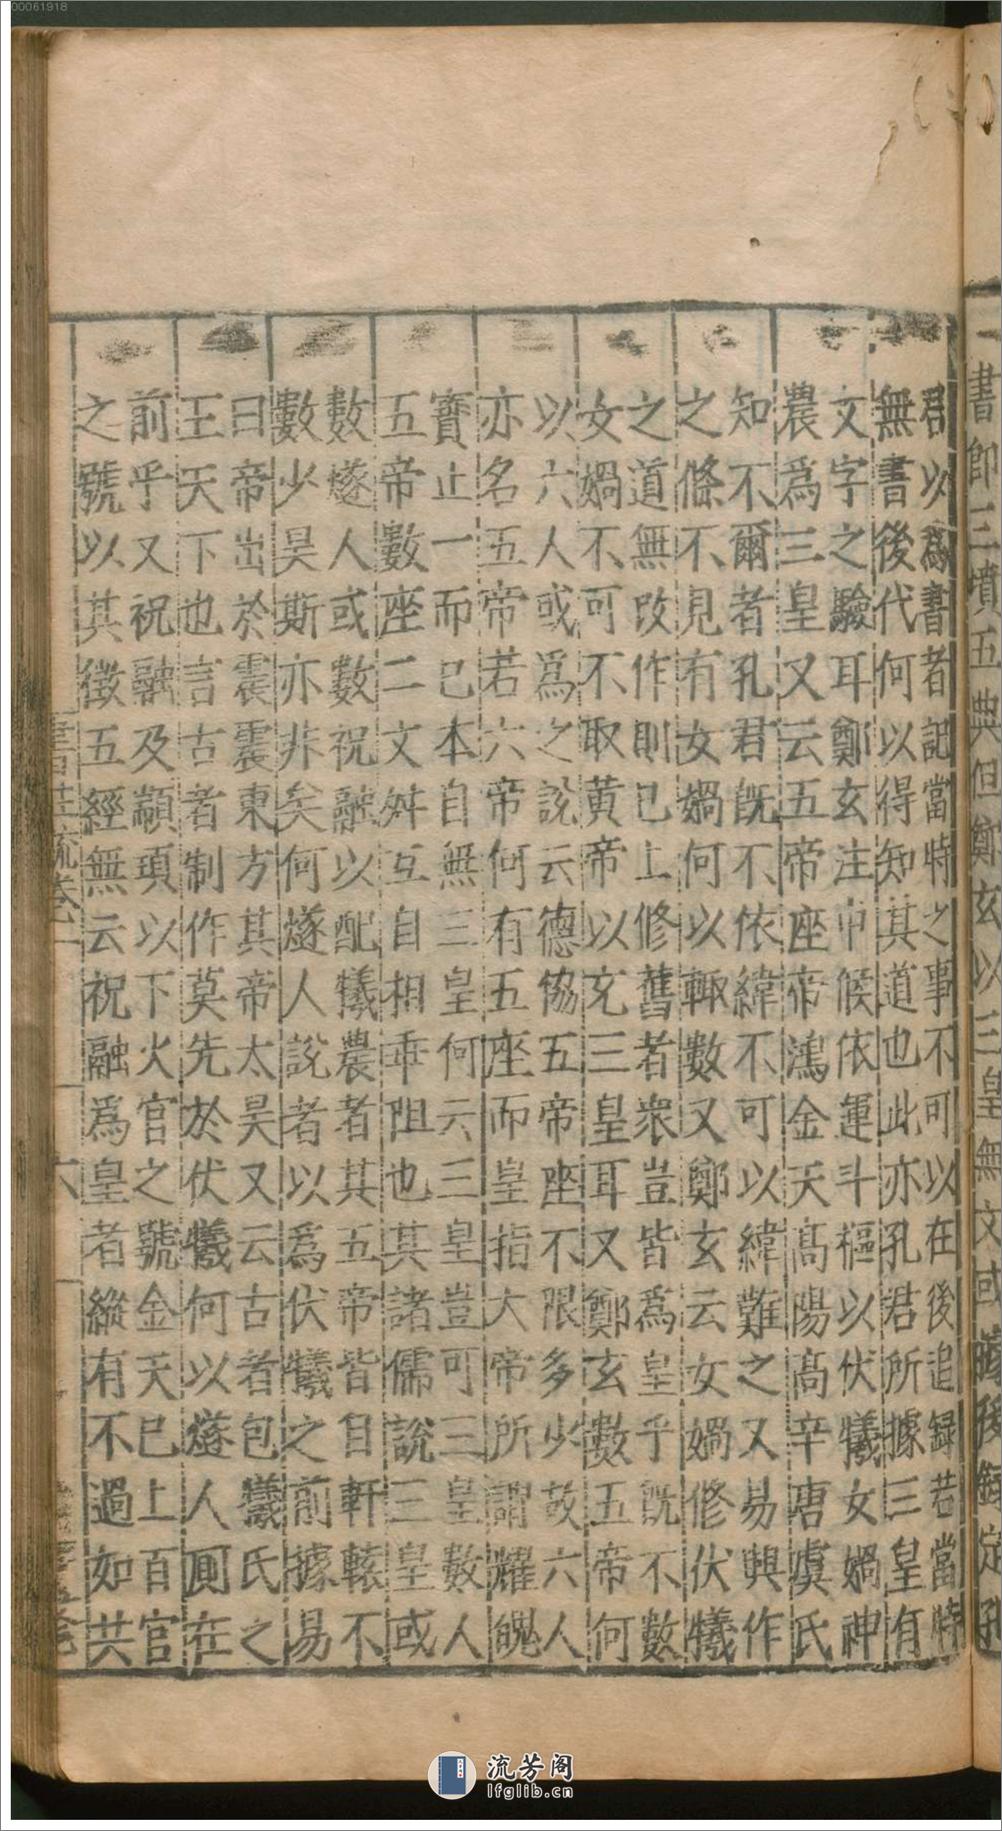 00061918
一書即三墳五典但鄭玄以三皇無文或據後錄定孔
君以爲書者記當時之事不可以在後追録若當時
無書後代何以得知其道也此亦孔君所據三皇有
文字之驗耳鄭玄注中候依運斗樞以伏犧女媧神
農爲三皇又云五帝座帝鴻金天髙陽髙辛唐虞氏
知不爾者孔君旣不依緯不可以緯難之又易興作
之條不見有女媧何以輙數又鄭玄云女媧修伏犧
之道無改作則已上修舊者衆豈皆爲皇乎旣不數
女媧不可不取黄帝以充三皇耳又鄭玄數五帝何
以六人或爲之說云德恊五帝座不限多少故六人
亦名五帝若六帝何有五座而皇指大帝所謂耀魄
寳止一而已本自無三皇何云三皇豈可三皇數人
五帝數座二文舛互自相乖阻也其諸儒說三皇或
數燧人或數祝融以配犧農者其五帝皆自軒轅不
數少昊斯亦非矣何燧人說者以爲伏犧之前據易
曰帝出於震震東方其帝太昊又云古者包犧氏之
王天下也言古者制作莫先於伏犧何以燧人厠在
前乎又祝融及顓頊以下火官之號金天已上百官
之號以其徵五經無云祝融爲皇者縱有不過如共
書注疏卷一
六
流芳阁
lfglib.cn